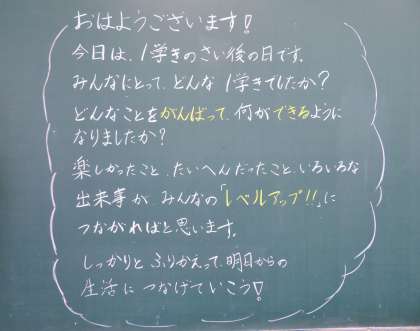 おはようございます!
今日は、1学きのさい後の日です。
みんなにとって、どんな1学きでしたか?
どんなことをがんばって、何ができるように
なりましたか?
楽しかったこと、たいへんだったこと、いろいろな
出来事が、みんなの「レベルアップ!!」に
つながればと思います。
しっかりと ふりかえって、明日からの
生活に つなげていこう!